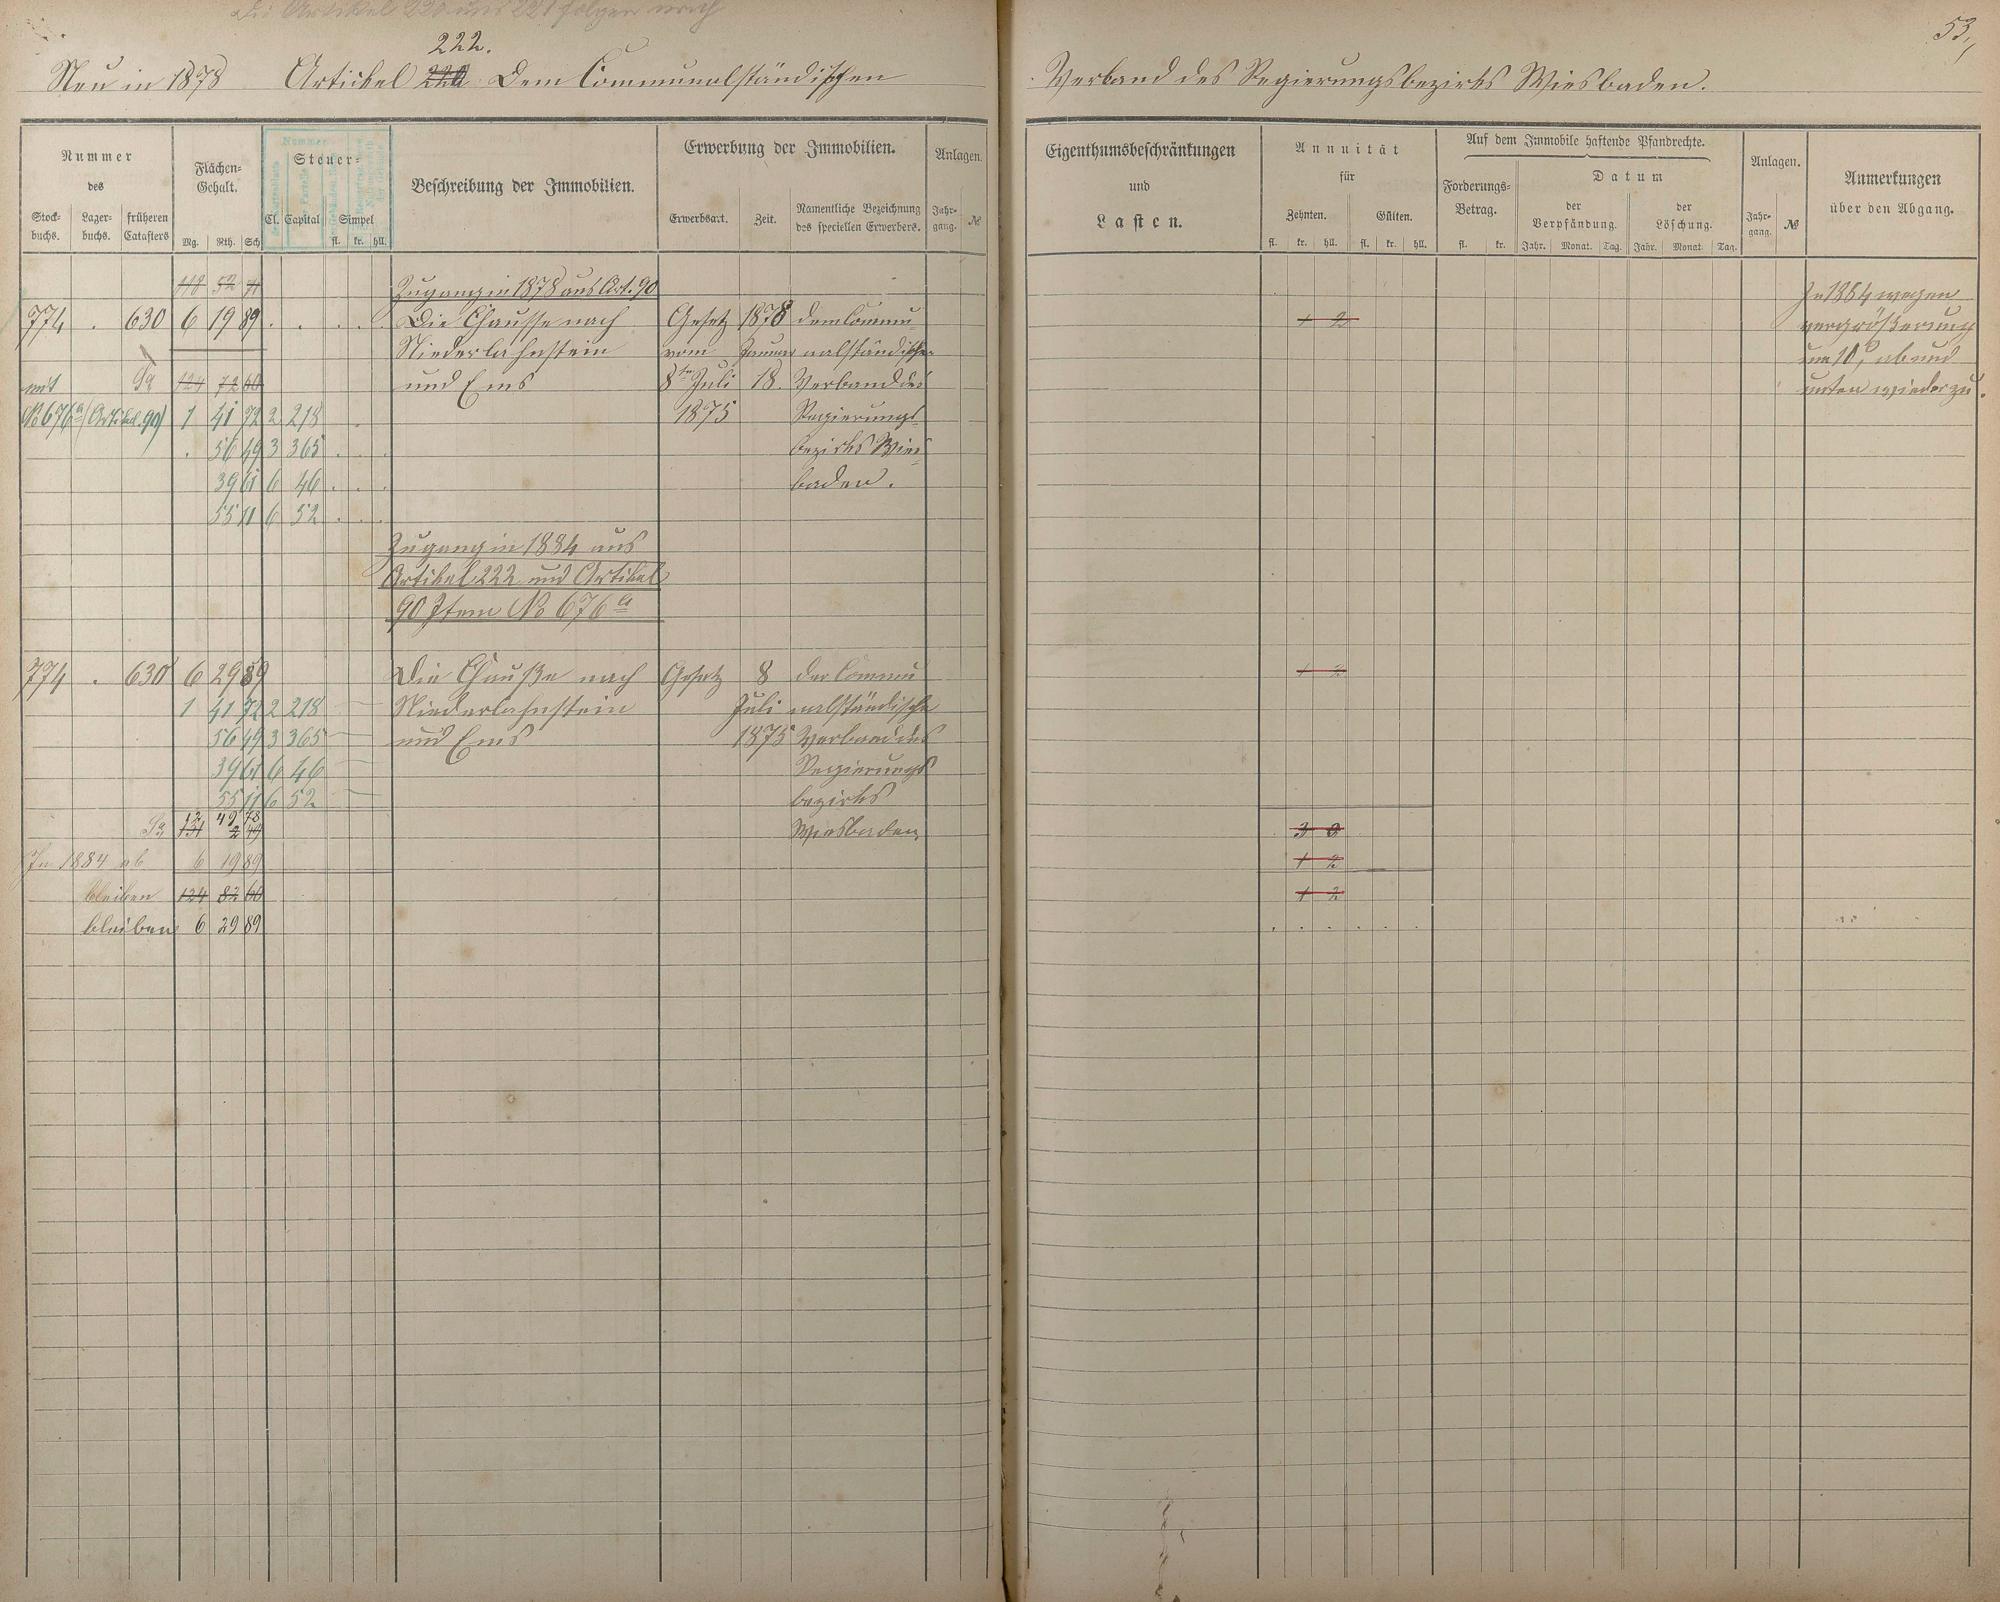 Die Artikel 220 und 221 folgen nach
53,
222.
Neu in 1878 Artickel 220 Dem Communalständischen Verband des Regierungsbezirks Wiesbaden.
Nummer
des
Stock-
buchs.
Lager-
buchs.
früheren
Catasters
Flächen-
Gehalt.
Mg. Rth. Sch
Nummer
Steuer-
Cl. Capital Simpel
fl. kr. hll.
Beschreibung der Immobilien.
Erwerbung der Immobilien.
Erwerbsart. Zeit.
Namentliche Bezeichnung
des speciellen Erwerbers.
Anlagen.
Jahr-
gang. №
Eigenthumsbeschränkungen
und
Lasten.
Annuität
für
Zehnten. Gülten.
fl. kr. hll. fl. kr. hll.
Auf dem Immobile haftende Pfandrechte.
Forderungs-
Betrag.
fl. kr.
Datum
der
Verpfändung.
der
Löschung.
Jahr. Monat. Tag. Jahr. Monat. Tag.
Anlagen.
Jahr-
gang. №
Anmerkungen
über den Abgang.
118 52 71 Zugang in 1878 aus Art. 90 In 1884 wegen
774 . 630 6 19 89 Die Chausse nach Gesetz 1878 dem Commu- 1 2 vergrößerung
Niederlahnstein vom Januar nalständischen um 10°, ab und
mit Sa 124 72 60 und Ems 8ten Juli 18. Verband des unten wieder zu.
№ 676a (Artikel 90) 1 41 72 2 218 1875 Regierungs-
56 49 3 365 bezirks Wies-
39 61 6 46 baden.
55 11 6 52
Zugang in 1884 aus
Artikel 222 und Artikel
90 Item № 676a
774 . 630 6 29 89 Die Chaußee nach Gesetz 8 der Commu 1 2
1 41 72 2 218 Niederlahnstein Juli nalständische
56 49 3 365 und Ems 1875 Verband des
39 61 6 46 Regierungs
55 11 6 52 bezirks
12 49 78
Sa 131 2 49 Wiesbaden 3 0
In 1884 ab 6 19 89 1 2
bleiben 124 82 60 1 2
bleiben 6 29 89